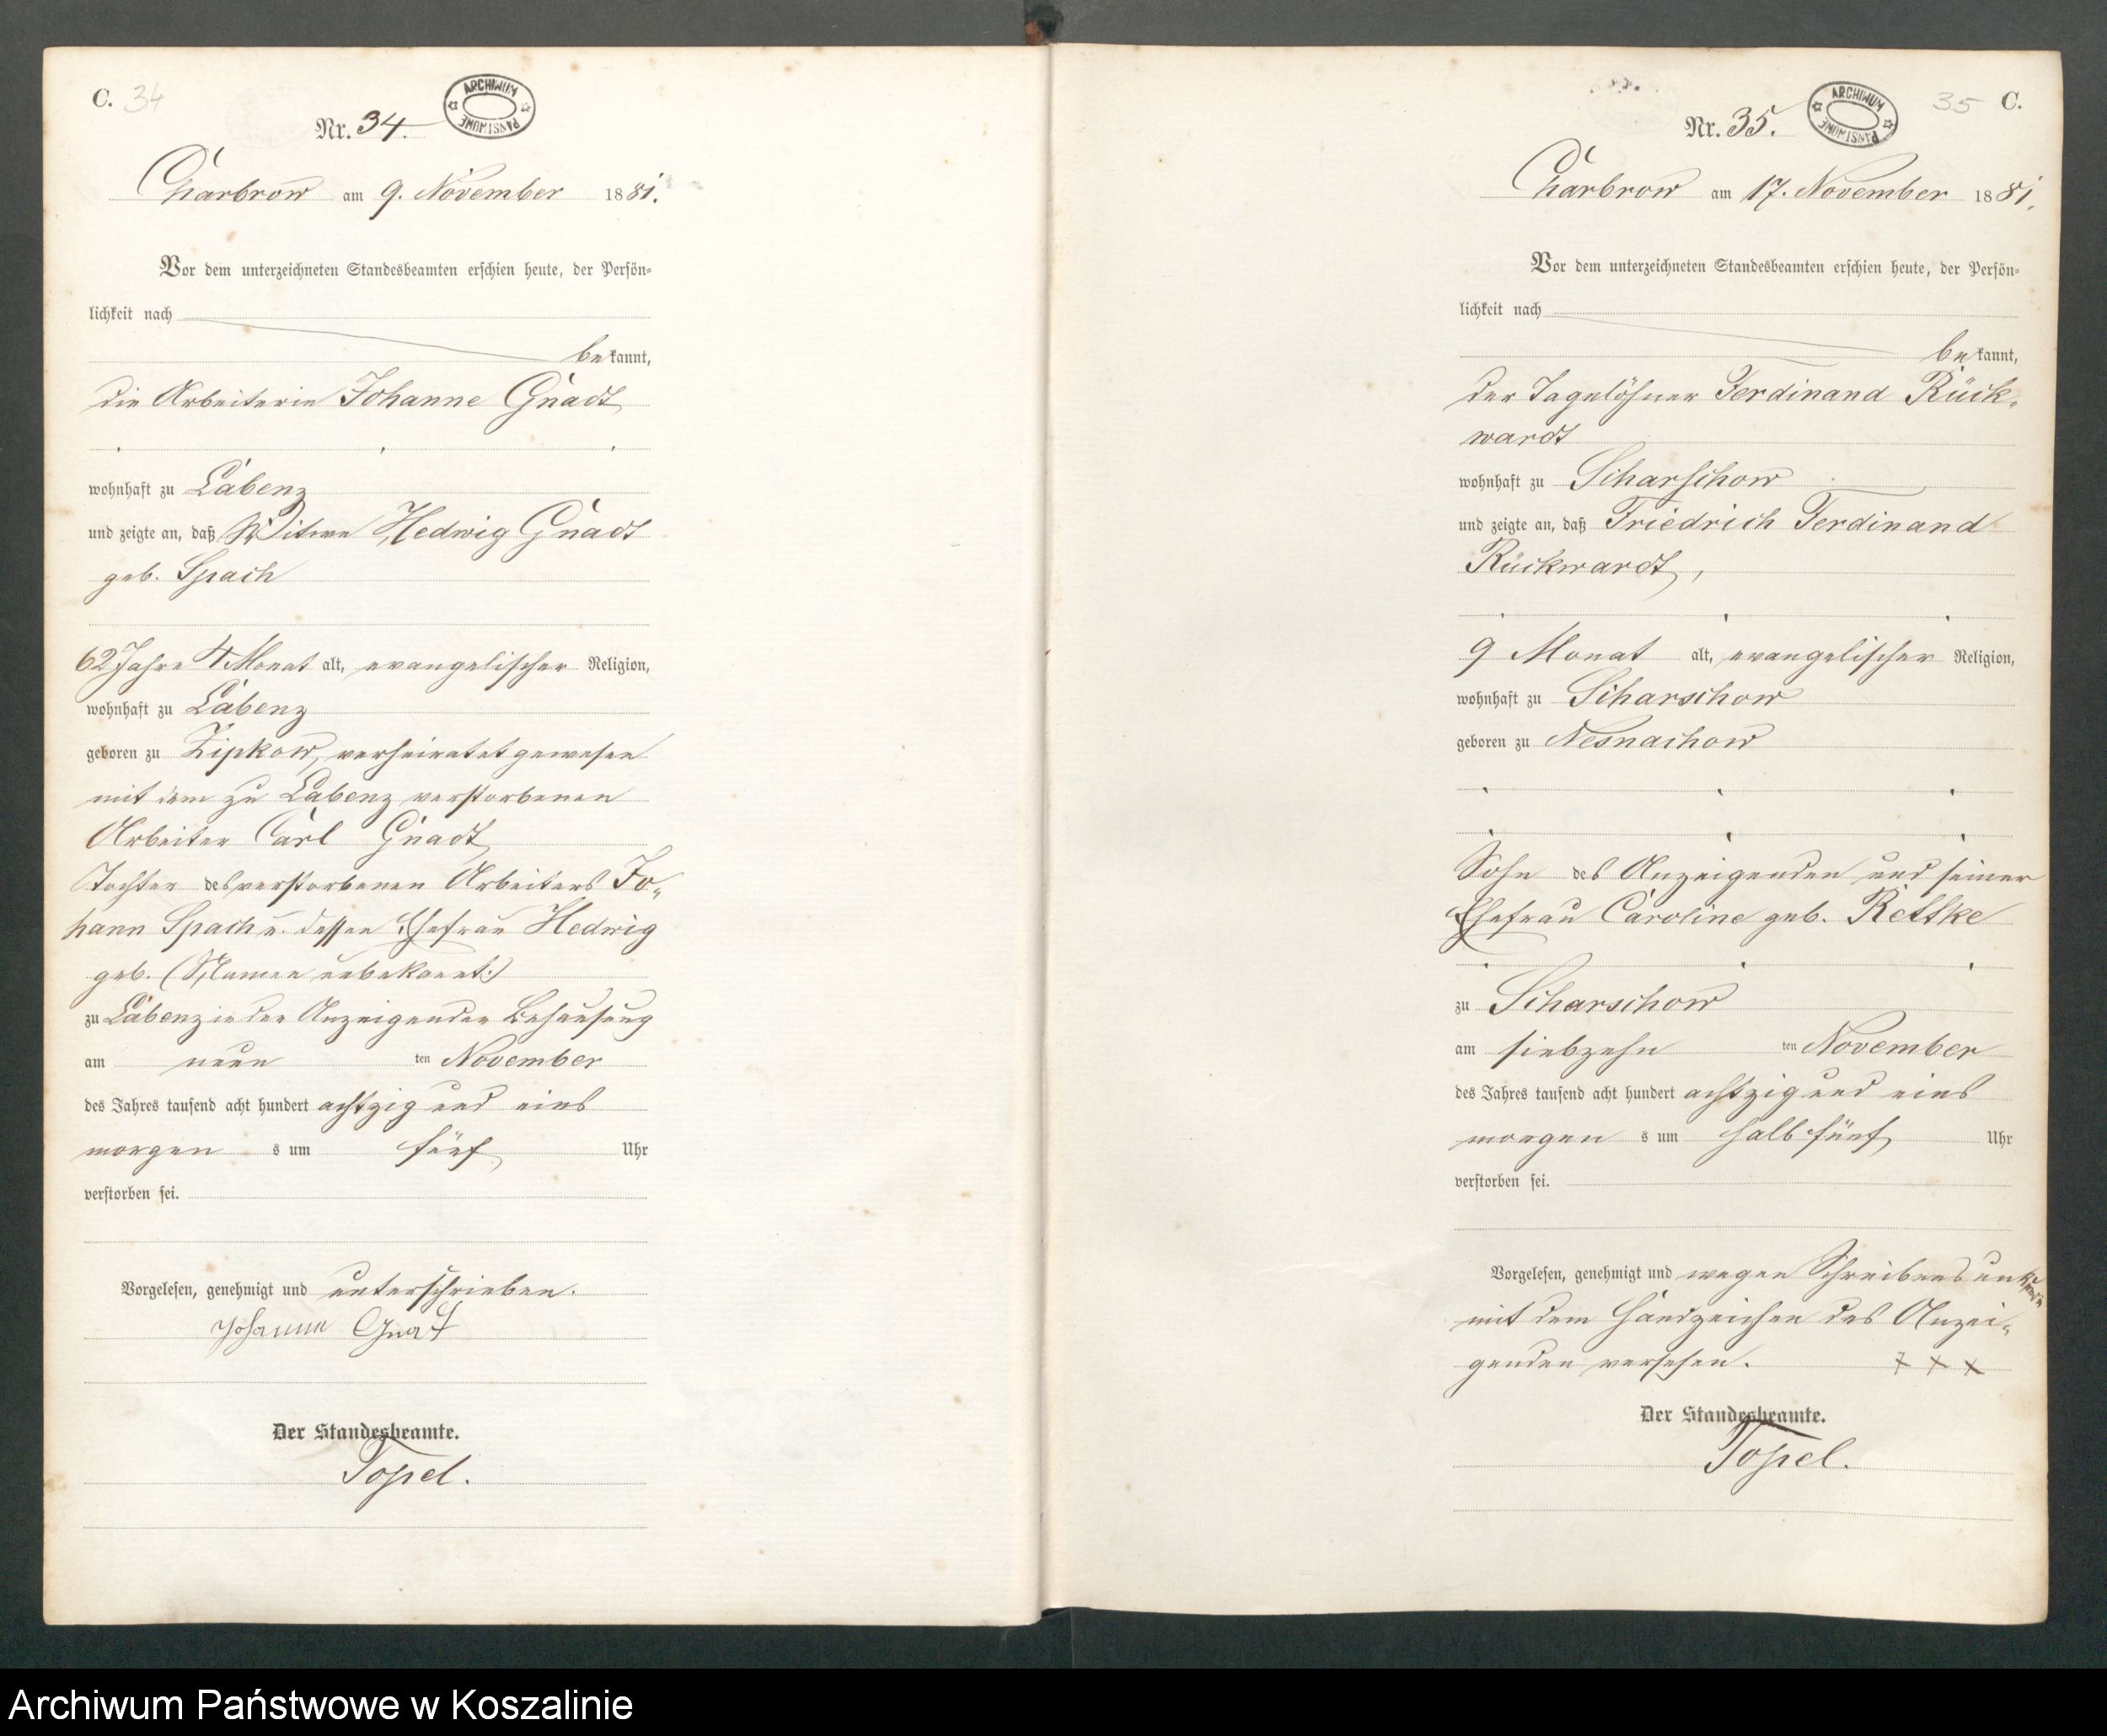 C. 34
Nr. 34.
ARCHIWUM PAŃSTWOWE
Charbrow am 9. November 1881.
Vor dem unterzeichneten Standesbeamten erschien heute, der Persön-
lichkeit nach
bekannt,
die Arbeiterin Johanne Gnadt
wohnhaft zu Labenz
und zeigte an, daß Witwe Hedwig Gnadt
geb. Spach
62 Jahre 4 Monat alt, evangelischer Religion,
wohnhaft zu Labenz
geboren zu Zipkow, verheiratet gewesen
mit dem zu Labenz verstorbenen
Arbeiter Carl Gnadt
Tochter des verstorbenen Arbeiters Jo-
hann Spach u. dessen Ehefrau Hedwig
geb. (Namen unbekannt)
zu Labenz in der Anzeigenden Behausung
am neun ten November
des Jahres tausend acht hundert achtzig und eins
morgens um fünf Uhr
verstorben sei.
Vorgelesen, genehmigt und unterschrieben.
Johanne Gnadt
Der Standesbeamte.
Topel.
35 C.
Nr. 35.
ARCHIWUM PAŃSTWOWE
Charbrow am 17. November 1881.
Vor dem unterzeichneten Standesbeamten erschien heute, der Persön-
lichkeit nach
bekannt,
der Tagelöhner Ferdinand Rück-
wardt
wohnhaft zu Scharschow
und zeigte an, daß Friedrich Ferdinand
Rückwardt,
9 Monat alt, evangelischer Religion,
wohnhaft zu Scharschow
geboren zu Nesnachow
Sohn des Anzeigenden und seiner
Ehefrau Caroline geb. Rettke
zu Scharschow
am siebzehn ten November
des Jahres tausend acht hundert achtzig und eins
morgens um halb fünf Uhr
verstorben sei.
Vorgelesen, genehmigt und wegen Schreibensunkunde
mit dem Handzeichen des Anzei-
genden versehen. + + +
Der Standesbeamte.
Topel.
Archiwum Państwowe w Koszalinie